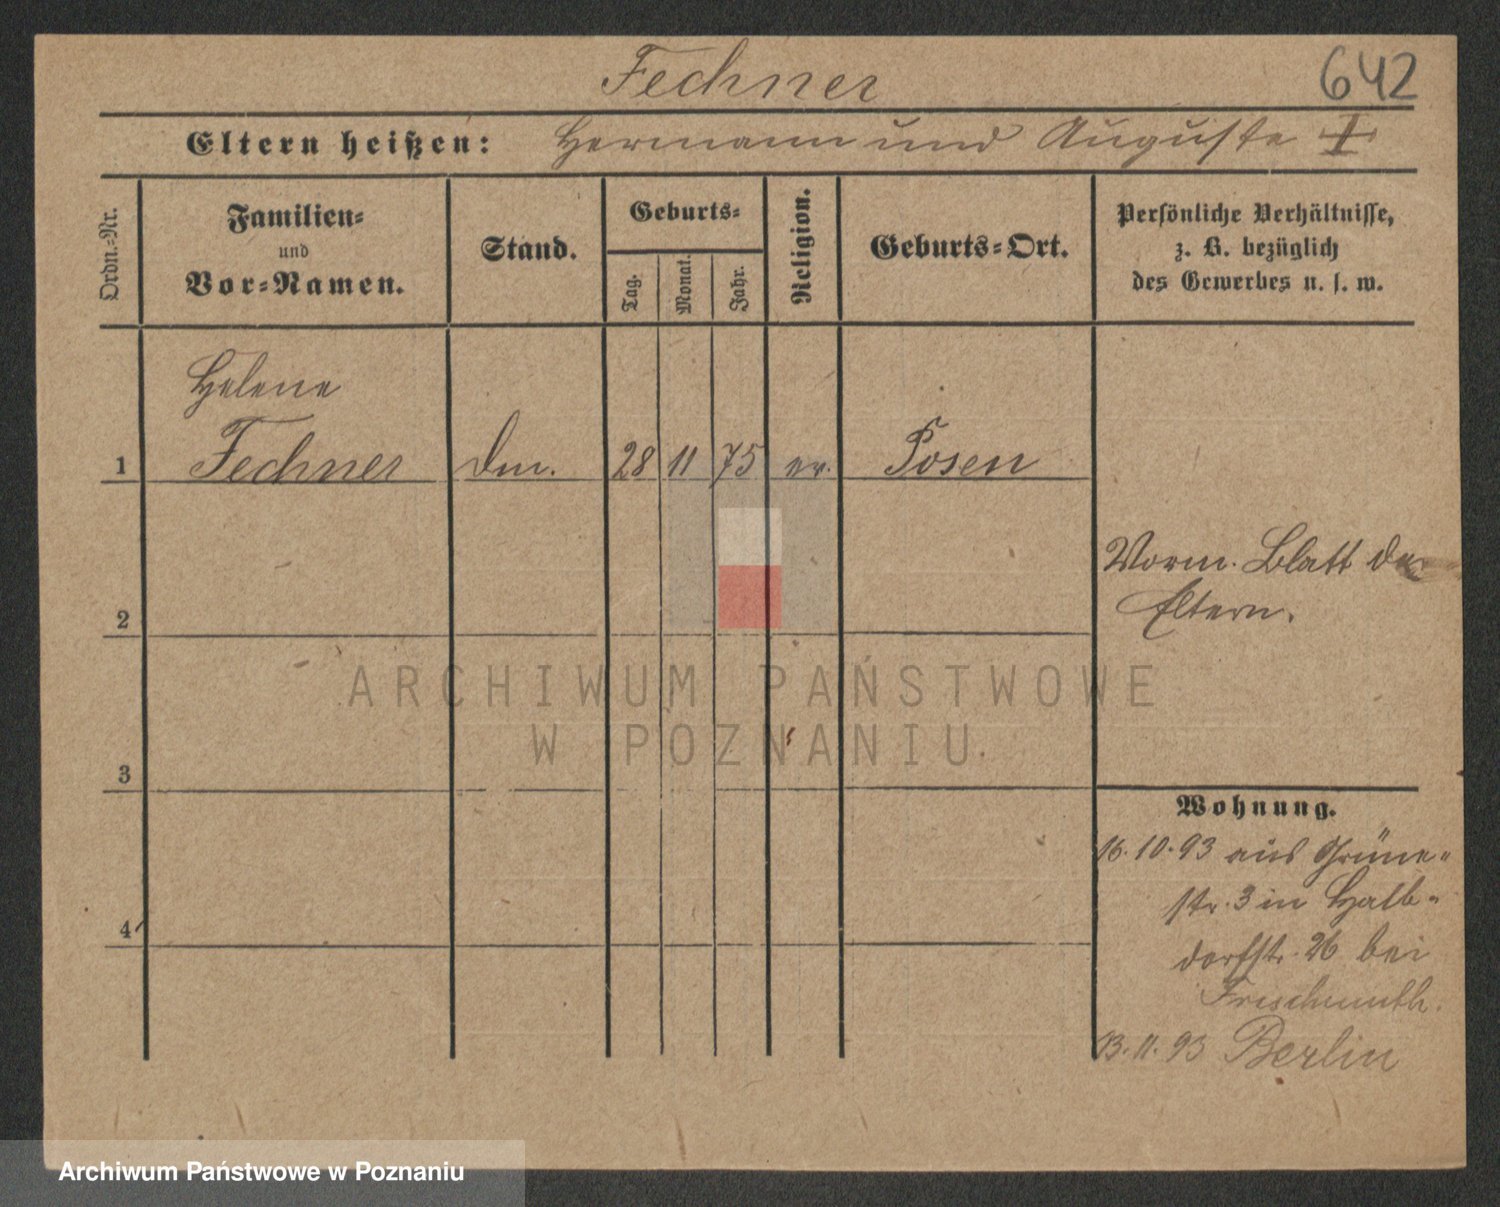 Fechner
642
Eltern heißen: Hermann und Auguste
Ordn.=Nr.
Familien=
und
Vor=Namen.
Stand.
Geburts=
Tag.
Monat.
Jahr.
Religion.
Geburts=Ort.
Persönliche Verhältnisse,
z. B. bezüglich
des Gewerbes u. s. w.
Helene
1 Fechner 28 11 75 ev. Posen
Vorm. Blatt der
Eltern.
2
3
4
Wohnung.
16.10.93 aus Grüne=
str. 3 in Halb=
dorfstr. 26 bei
Frischmuth.
13.11.93 Berlin
ARCHIWUM PAŃSTWOWE
W POZNANIU
Archiwum Państwowe w Poznaniu